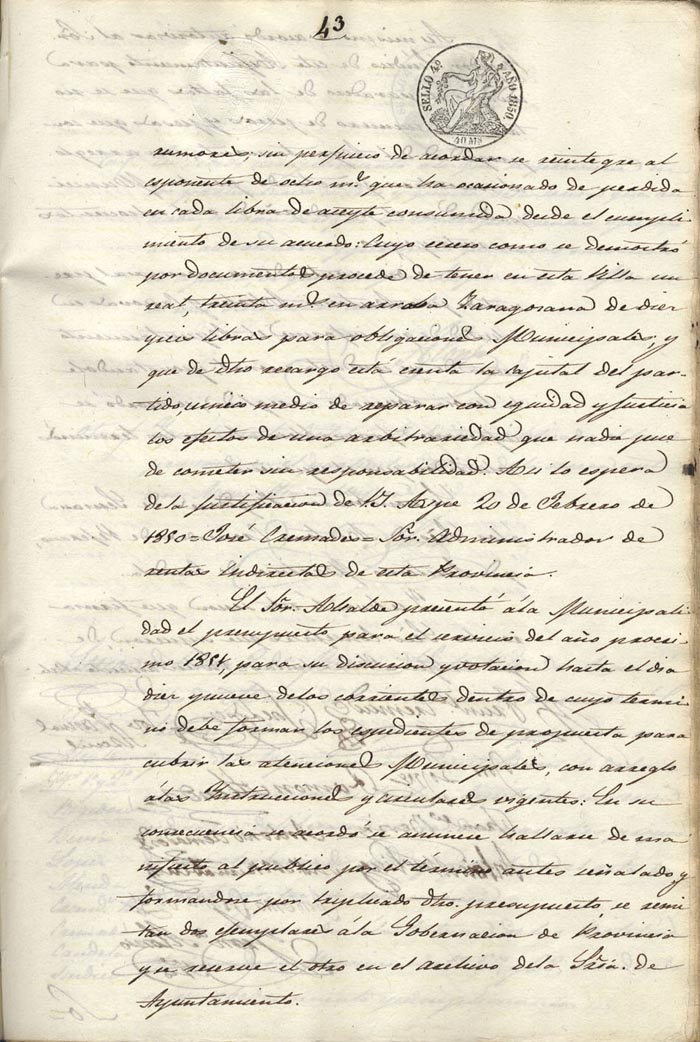 43
SELLO 4º AÑO 1850
40 Ms
rumores; sin perjuicio de acordar se reintegre al
esponente de ocho m.s que ha ocasionado de perdida
en cada libra de aceyte consumida desde el cumpli
miento de su acuerdo: Cuyo eceso como se demostró
por documentos procede de tener en esta Villa un
real, treinta m.s en arroba Zaragozana de diez
y seis libras para obligaciones Municipales, y
que de dho recargo está esenta la capital del par-
tido, unico medio de reparar con equidad y justicia
los efectos de una arbitrariedad que nadie pue
de cometer sin responsabilidad. Asi lo espera
dela justificacion de V.S. Aspe 20 de Febrero de
1850 = José Cremades = Sõr. Administrador de
rentas indirectas de esta Provincia.
El Sõr. Alcalde presentó á la Municipali
dad el presupuesto para el servicio del año procsi
mo 1851, para su discusion y votacion hasta el dia
diez y nueve delos corrientes dentro de cuyo termi
no debe formar los espedientes de propuesta para
cubrir las atenciones Municipales, con arreglo
á las Instrucciones y circulares vigentes: En su
consecuencia se acordó se anuncie hallarse de ma
nifiesto al publico por el término antes señalado, y
formandose por triplicado dho. presupuesto, se remi
tan dos ejemplares á la Gobernacion de Provincia
y se reserve el otro en el archivo dela Sria. de
Ayuntamiento.